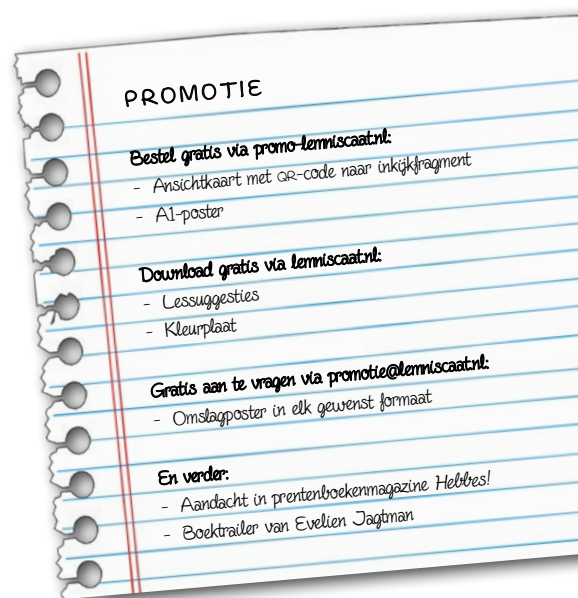 PROMOTIE
Bestel gratis via promo-lemniscaat.nl:
- Ansichtkaart met QR-code naar inkijkfragment
- A1-poster
Download gratis via lemniscaat.nl:
- Lessuggesties
- Kleurplaat
Gratis aan te vragen via promotie@lemniscaat.nl:
- Omslagposter in elk gewenst formaat
En verder:
- Aandacht in prentenboekenmagazine Hebbes!
- Boektrailer van Evelien Jagtman